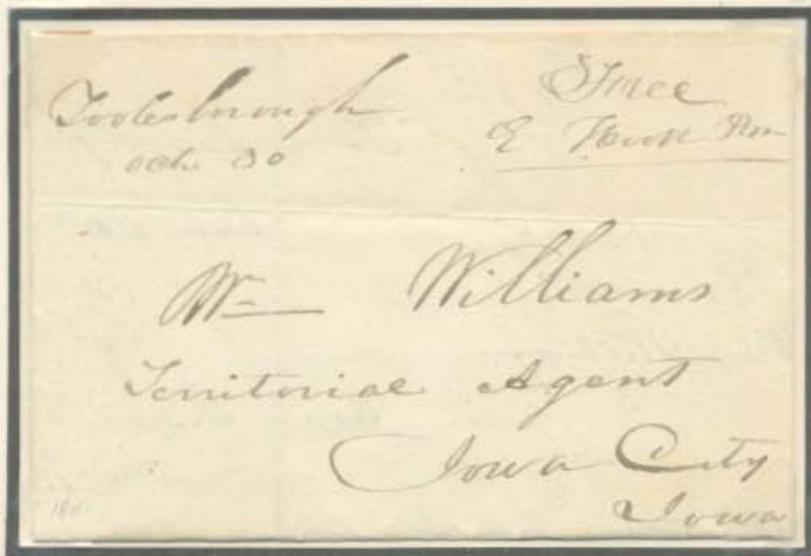 Toolesborough
Free
E Hook Pm
Wm Williams
Territorial Agent
Iowa City
Iowa